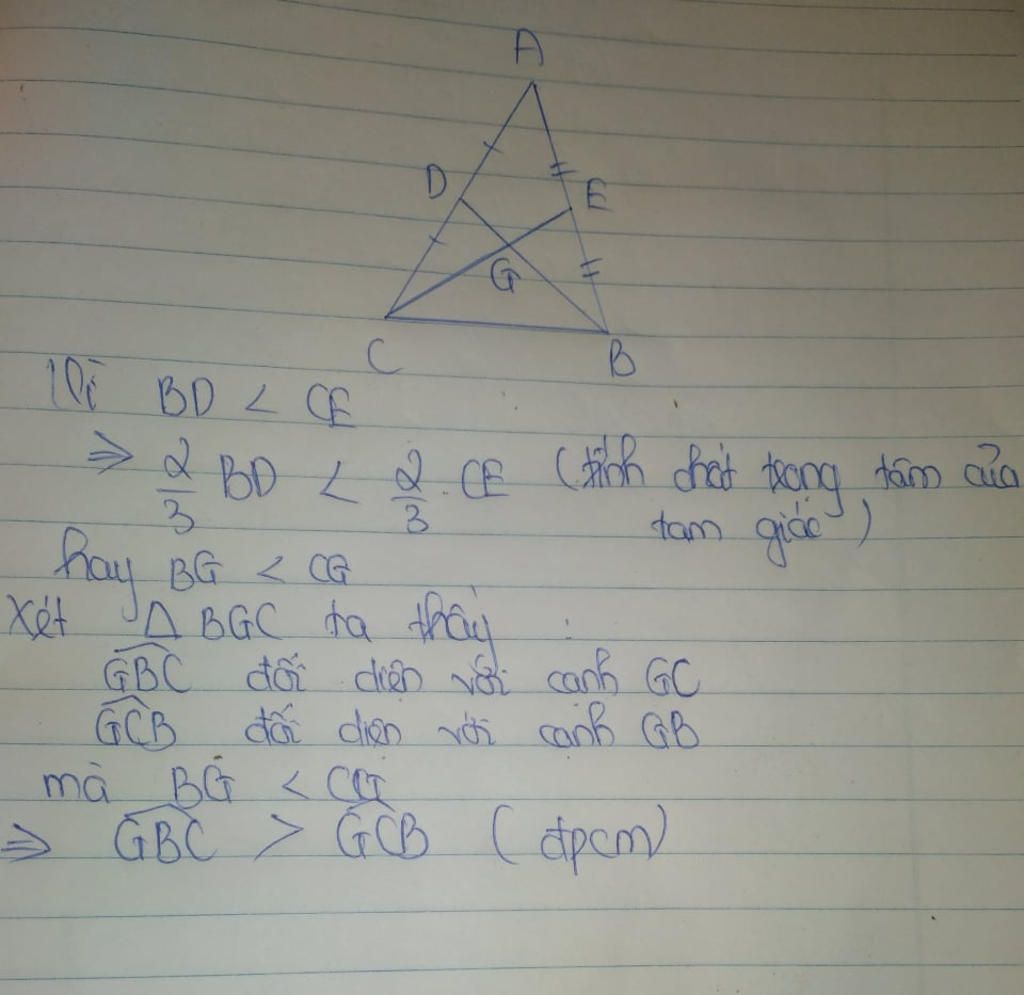 A
D
E
G
C
B
Vì BD < CE
⇒ 2/3 BD < 2/3 . CE (tính chất trọng tâm của
tam giác)
hay BG < CG
Xét Δ BGC ta thấy :
\widehat{GBC} đối diện với cạnh GC
\widehat{GCB} đối diện với cạnh GB
mà BG < CG
⇒ \widehat{GBC} > \widehat{GCB} (đpcm)